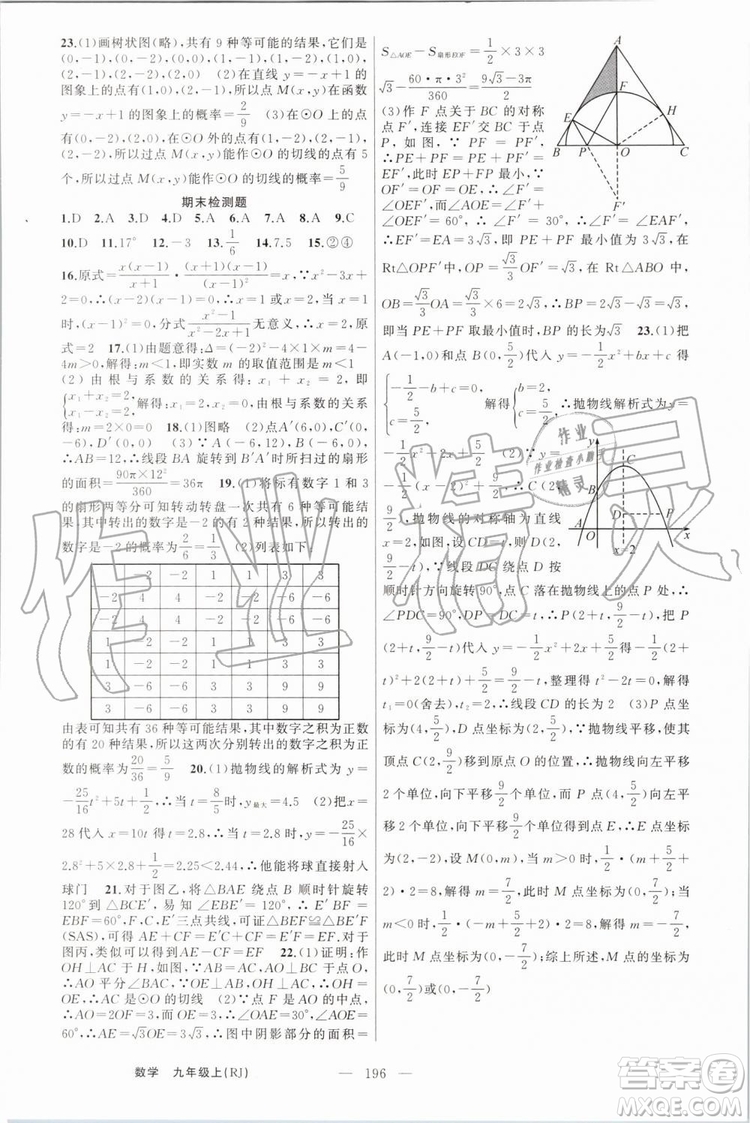 23.(1)画树状图(略),共有 9 种等可能的结果,它们是
(0,-1),(0,-2),(0,0),(1,-1),(1,-2),(1,0),
(2,-1),(2,-2),(2,0) (2)在直线 y=-x+1 的
图象上的点有(1,0),(2,-1),所以点 M(x,y)在函数
y=-x+1 的图象上的概率=2/9 (3)在⊙O 上的
点有(0,-2),(2,0),在⊙O外的点有(1,-2),(2,
-1),(2,-2),所以过点 M(x,y)能作⊙O的切线的点有 5
个,所以过点 M(x,y)能作⊙O 的切线的概率=5/9
期末检测题
1.D 2.A 3.D 4.D 5.B 6.A 7.A 8.A 9.C
10.D 11.17° 12.-3 13.1/6 14.7.5 15.②④
16.原式=x(x-1)/(x+1)·(x+1)(x-1)/(x-1)²=x,∵x²-3x+
2=0,∴(x-2)(x-1)=0,∴x=1或 x=2,当 x=1时,
(x-1)²=0,分式(x²-1)/(x²-2x+1)无意义,∴x=2,原
式=2 17.(1)由题意得:Δ=(-2)²-4×1×m=4-
4m>0,解得:m<1,即实数 m 的取值范围是 m<1
(2)由根与系数的关系得:x₁+x₂=2,即
{x₁+x₂=2, x₁-x₂=2, 解得:x₁=2,x₂=0,由根与系数的关系得:
m=2×0=0 18.(1)图略 (2)点A′(6,0),C′(0,
-6),D′(0,0) (3)∵A(-6,0),B(6,0),
∴AB=12,∴线段 BA 旋转到 B′A′时所扫过的扇形
的面积=90π×12²/360=36π 19.(1)将标有数字 1 和 3
的扇形两等分可知转动转盘一次共有 6 种等可能结
果,其中转出的数字是-2 的有 2 种结果,所以转出的
数字是-2 的概率为2/6=1/3 (2)列表如下:
-2 -2 1 1 3 3
-2 4 4 -2 -2 -6 -6
-2 4 4 -2 -2 -6 -6
1 -2 -2 1 1 3 3
1 -2 -2 1 1 3 3
3 -6 -6 3 3 9 9
3 -6 -6 3 3 9 9
由表可知共有 36 种等可能结果,其中数字之积为正数
的有 20 种结果,所以这两次分别转出的数字之积为正
数的概率为20/36=5/9 20.(1)抛物线的解析式为 y=
-25/16t²+5t,∴当 t=8/5时,y最大=4.5 (2)把 x=
28 代入 x=10t 得 t=2.8,∴当 t=2.8 时,y=-25/16×
2.8²+5×2.8=1.75<2.44,∴他能将球直接射入
球门 21.对于图乙,将△BAE 绕点 B 顺时针旋转
120°到△BCE′,易知∠EBE′=120°,∵E′BF=
EBF=60°,F,C,E′三点共线,可证△BEF≌△E′BF
(SAS),可得 AE+CF=E′C+CF=E′F=EF 对于
图丙,类似可以得到 AE-CF=EF 22.(1)证明:作
OH⊥AC于点 H,∵AB=AC,AO⊥BC,∴AO 平分
∠BAC,∵OE⊥AB,OH⊥AC,∴OH=OE,
∴AC是⊙O 的切线 (2)∵点 F 是 AO 的中点,
∴AO=2OF=6,而 OE=3,∴∠OAE=30°,∠AOE=
60°,∴AE=√3OE=3√3,∴图中阴影部分的面积=
S△AOE-S扇形EOF=1/2×3×3
√3-60·π·3²/360=(9√3-3π)/2
(3)作 F 点关于 BC 的对称
点 F′,连接 EF′交 BC 于点
P,如图,∵PF=PF′,
∴PE+PF=PE+PF′=
EF′,此时 EP+FP 最小,∵
OF′=OF=OE,∴∠F′=
∠OEF′,而∠AOE=∠F′+
∠OEF′=60°,∴∠F′=30°,∴∠F′=∠EAF′,
∴EF′=EA=3√3,即 PE+PF 最小值为 3√3,在
Rt△OPF′中,OP=√3/3OF′=√3,在 Rt△ABO 中,
OB=√3/3OA=√3/3×6=2√3,∴BP=2√3-√3=√3,
即当 PE+PF 取最小值时,BP 的长为√3 23.(1)把
A(-1,0)和点 B(0,5/2)代入 y=-1/2x²+bx+c 得
{-1/2-b+c=0, c=5/2, 解得{b=2, c=5/2, ∴抛物线解析式为 y=
-1/2x²+2x+5/2 (2)∵y=
-1/2(x-2)²+9/2,∴C(2,
9/2),抛物线的对称轴为直线
x=2,如图,设 CD=t,则
D(2,9/2-t),∵线段 DC 绕点 D 按
顺时针方向旋转90°,点 C落在抛物线上的点 P 处,∴
∠PDC=90°,DP=DC=t,∴P(2+t,9/2-t),把 P
(2+t,9/2-t)代入 y=-1/2x²+2x+5/2得-1/2(2+
t)²+2(2+t)+5/2=9/2-t,整理得 t²-2t=0,解得
t₁=0(舍去),t₂=2,∴线段 CD 的长为 2 (3)P 点坐
标为(4,5/2),D 点坐标为(2,5/2),∵抛物线平移,使其
顶点 C(2,9/2)移到原点 O 的位置,∴抛物线向左平移
2 个单位,向下平移9/2个单位,而 P 点(4,5/2)向左平移
2 个单位,向下平移9/2个单位得到点 E,∴E 点坐标为
(2,-2),设 M(0,m),当 m>0 时,1/2·(m+5/2
+2)·2=8,解得 m=7/2,此时 M 点坐标为(0,7/2);当
m<0时,1/2·(-m+5/2+2)·2=8,解得 m=-7/2,
此时 M 点坐标为(0,-7/2);综上所述,M 点坐标为
(0,7/2)或(0,-7/2)
A
F
E
H
B P O C
F′
C
D
P
x
x=2
作业精灵
作业
作业检查小助手
精灵
数学 九年级上(RJ) — 196 —
答案圈
MXQE.COM